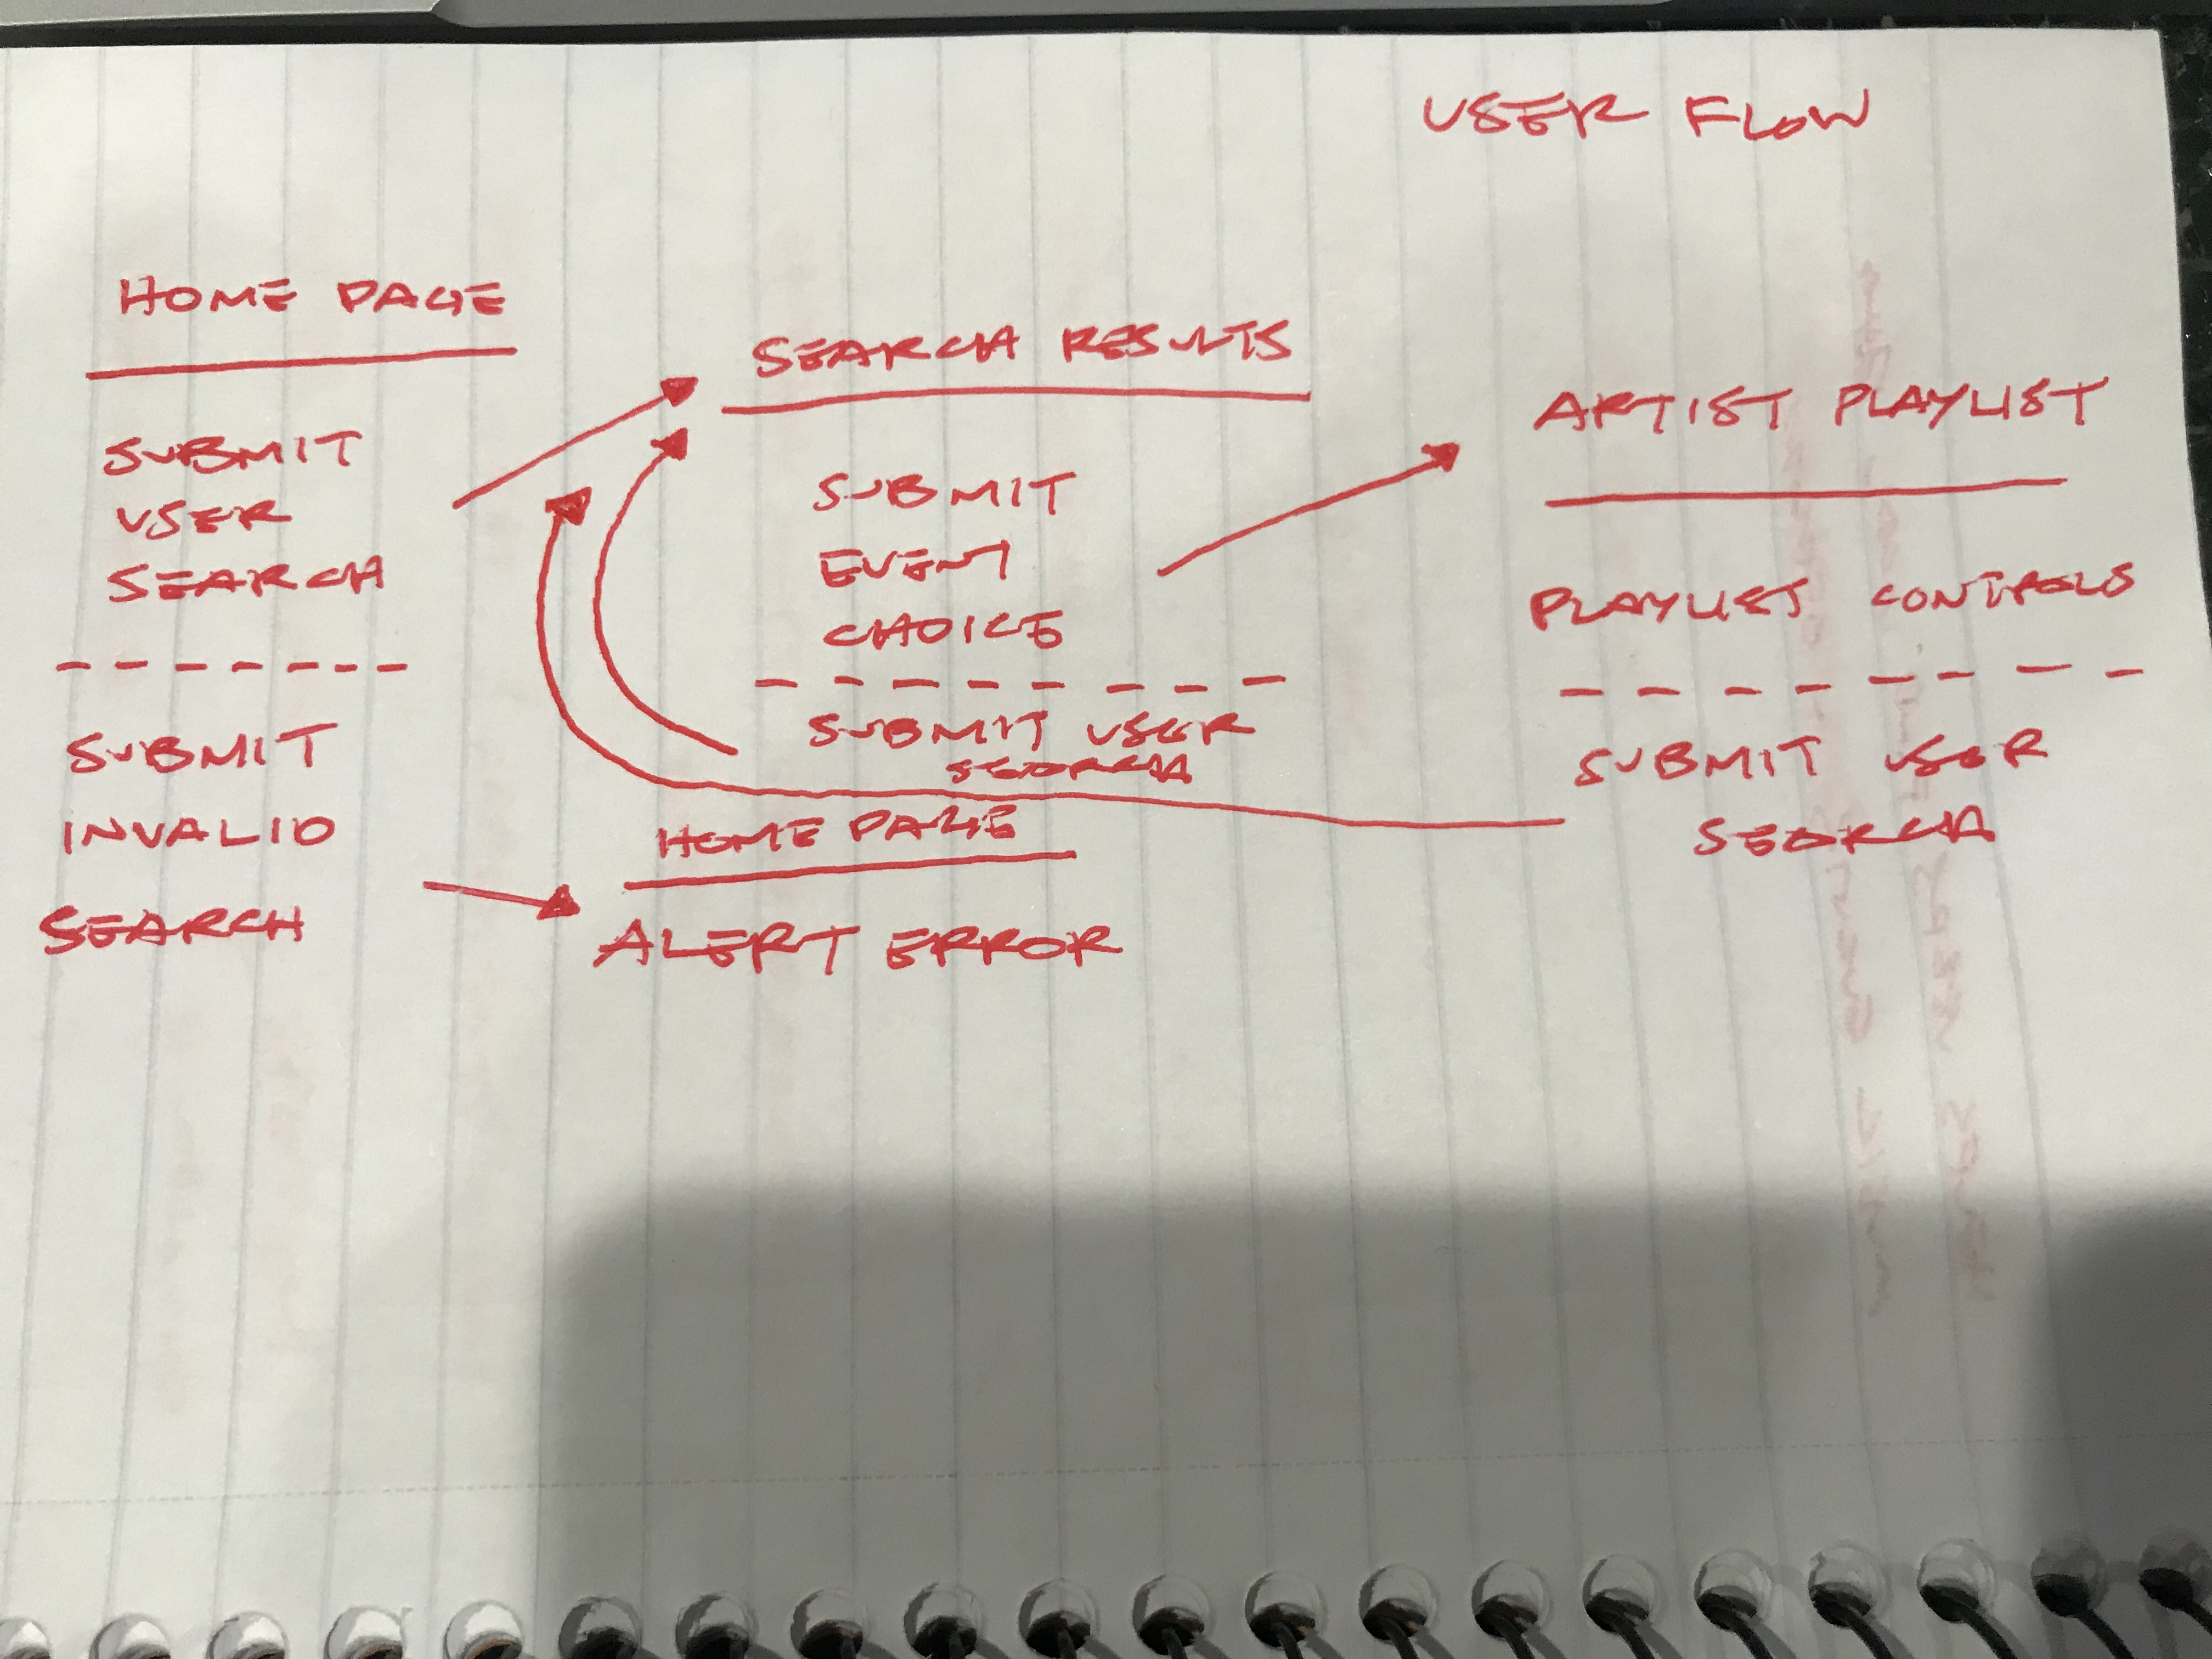 USER FLOW
HOME PAGE
SUBMIT
USER
SEARCH
SUBMIT
INVALID
SEARCH
SEARCH RESULTS
SUBMIT
EVENT
CHOICE
SUBMIT USER
SEARCH
HOME PAGE
ALERT ERROR
ARTIST PLAYLIST
PLAYLIST CONTROLS
SUBMIT USER
SEARCH